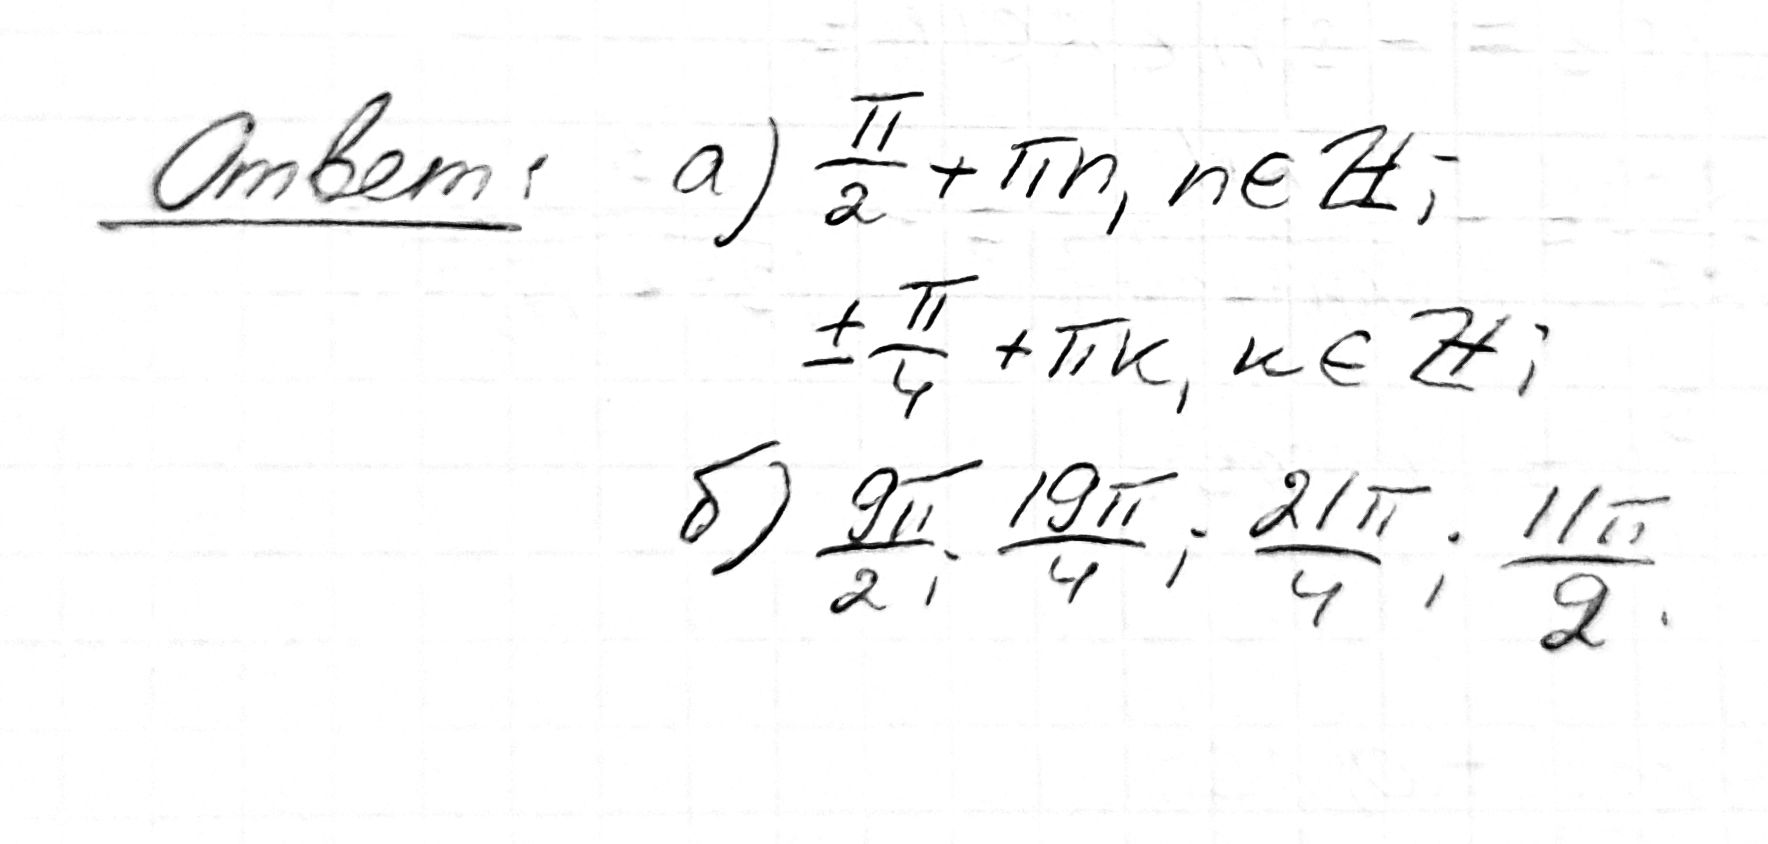 Ответ: а) π/2 + πn, n ∈ ℤ;
± π/4 + πк, к ∈ ℤ;
б) 9π/2; 19π/4; 21π/4; 11π/2.